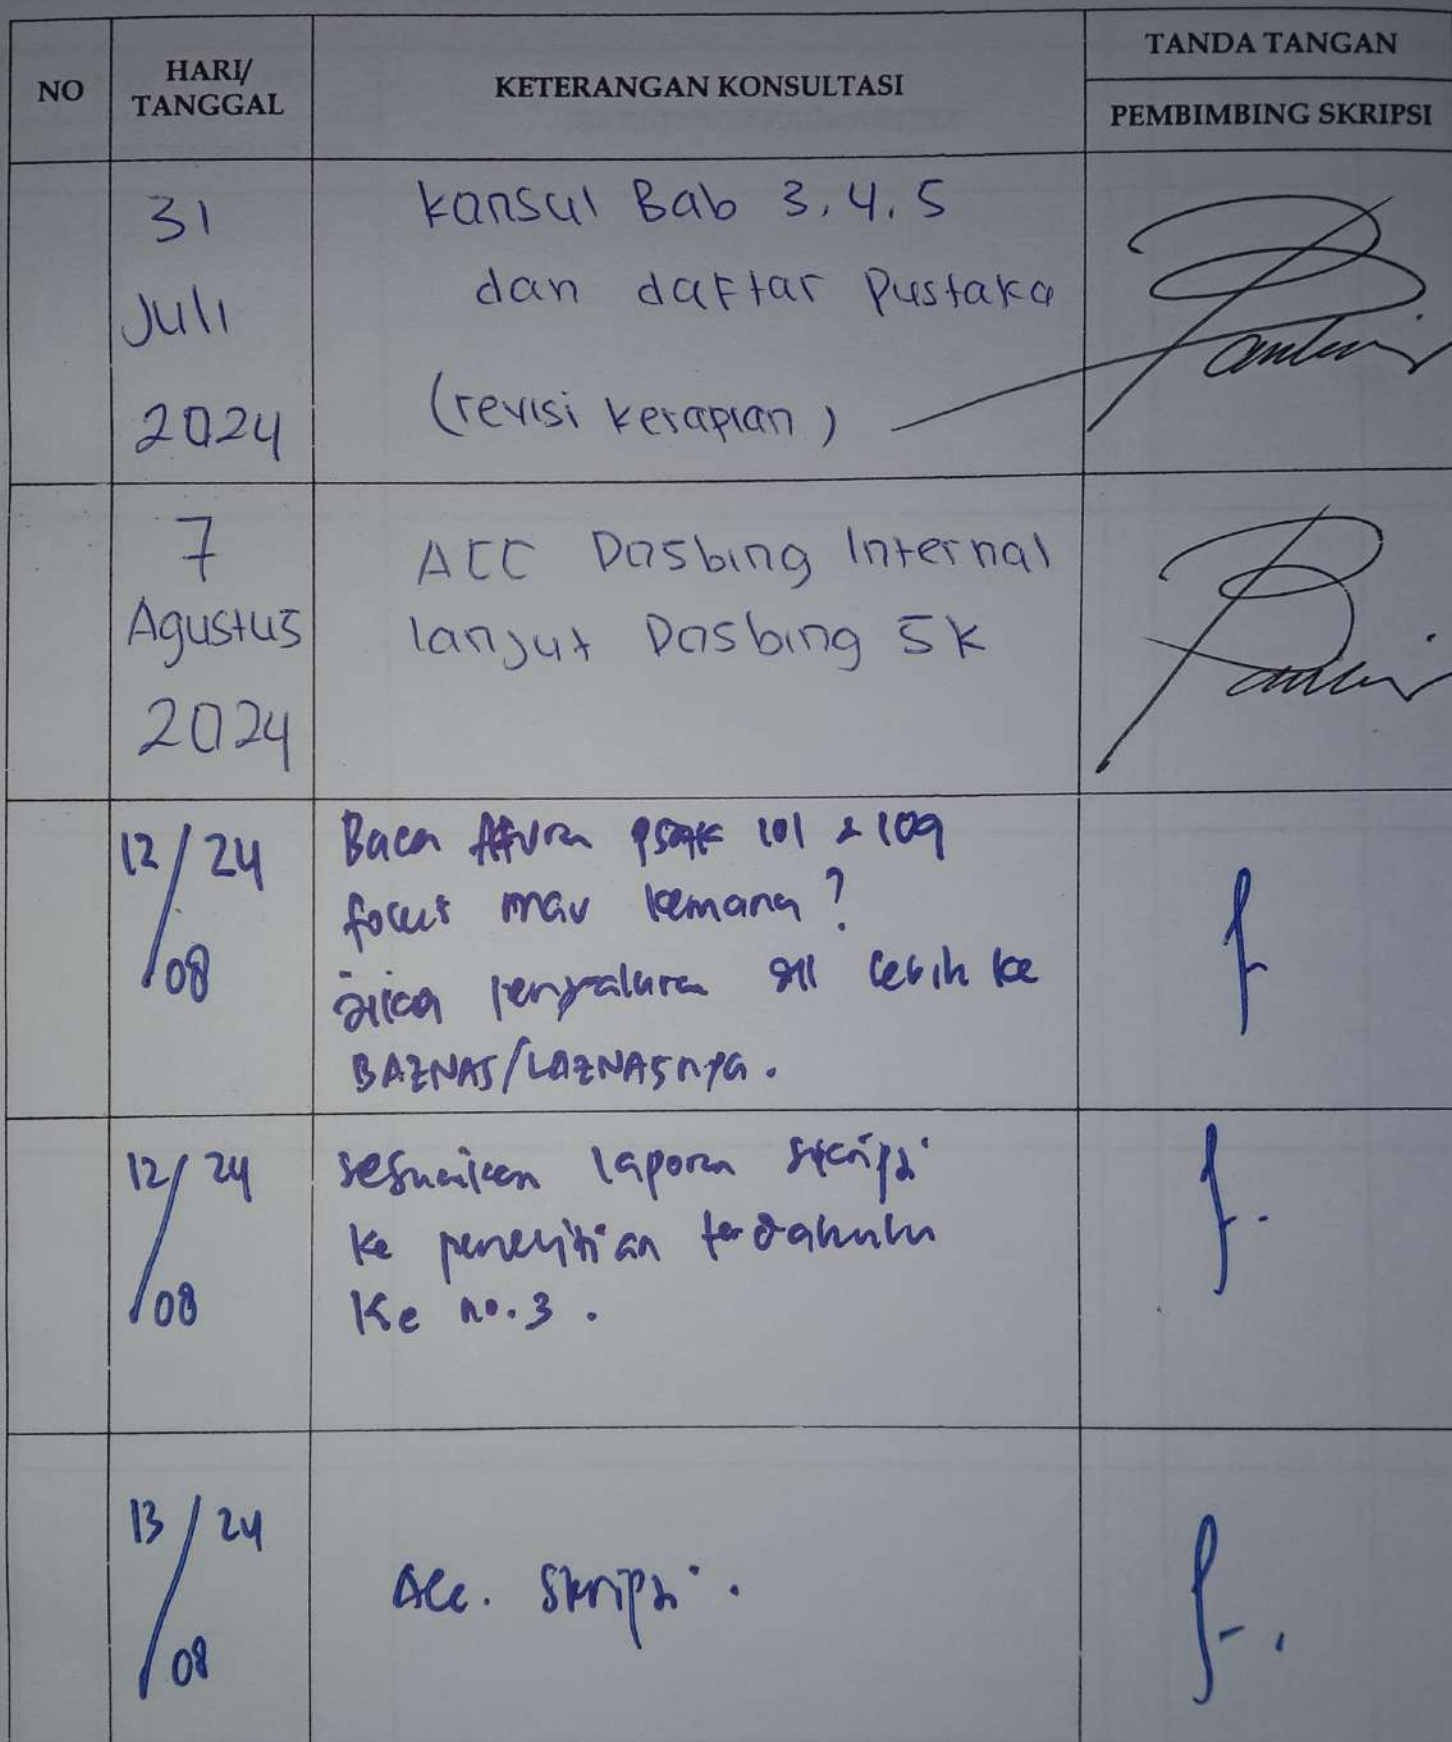 NO
HARI/
TANGGAL
KETERANGAN KONSULTASI
TANDA TANGAN
PEMBIMBING SKRIPSI
31
Juli
2024
Konsul Bab 3, 4, 5
dan daftar Pustaka
(revisi kerapian)
7
Agustus
2024
ACC Dosbing Internal
lanjut Dosbing SK
12/24
/08
Baca Aturan PSAK 101 & 109
focus mau kemana?
jika penyaluran lebih ke
BAZNAS/LAZNASnya.
12/24
/08
sesuaikan laporan skripsi
ke penelitian terdahulu
Ke no. 3.
13/24
/08
Acc. Skripsi.